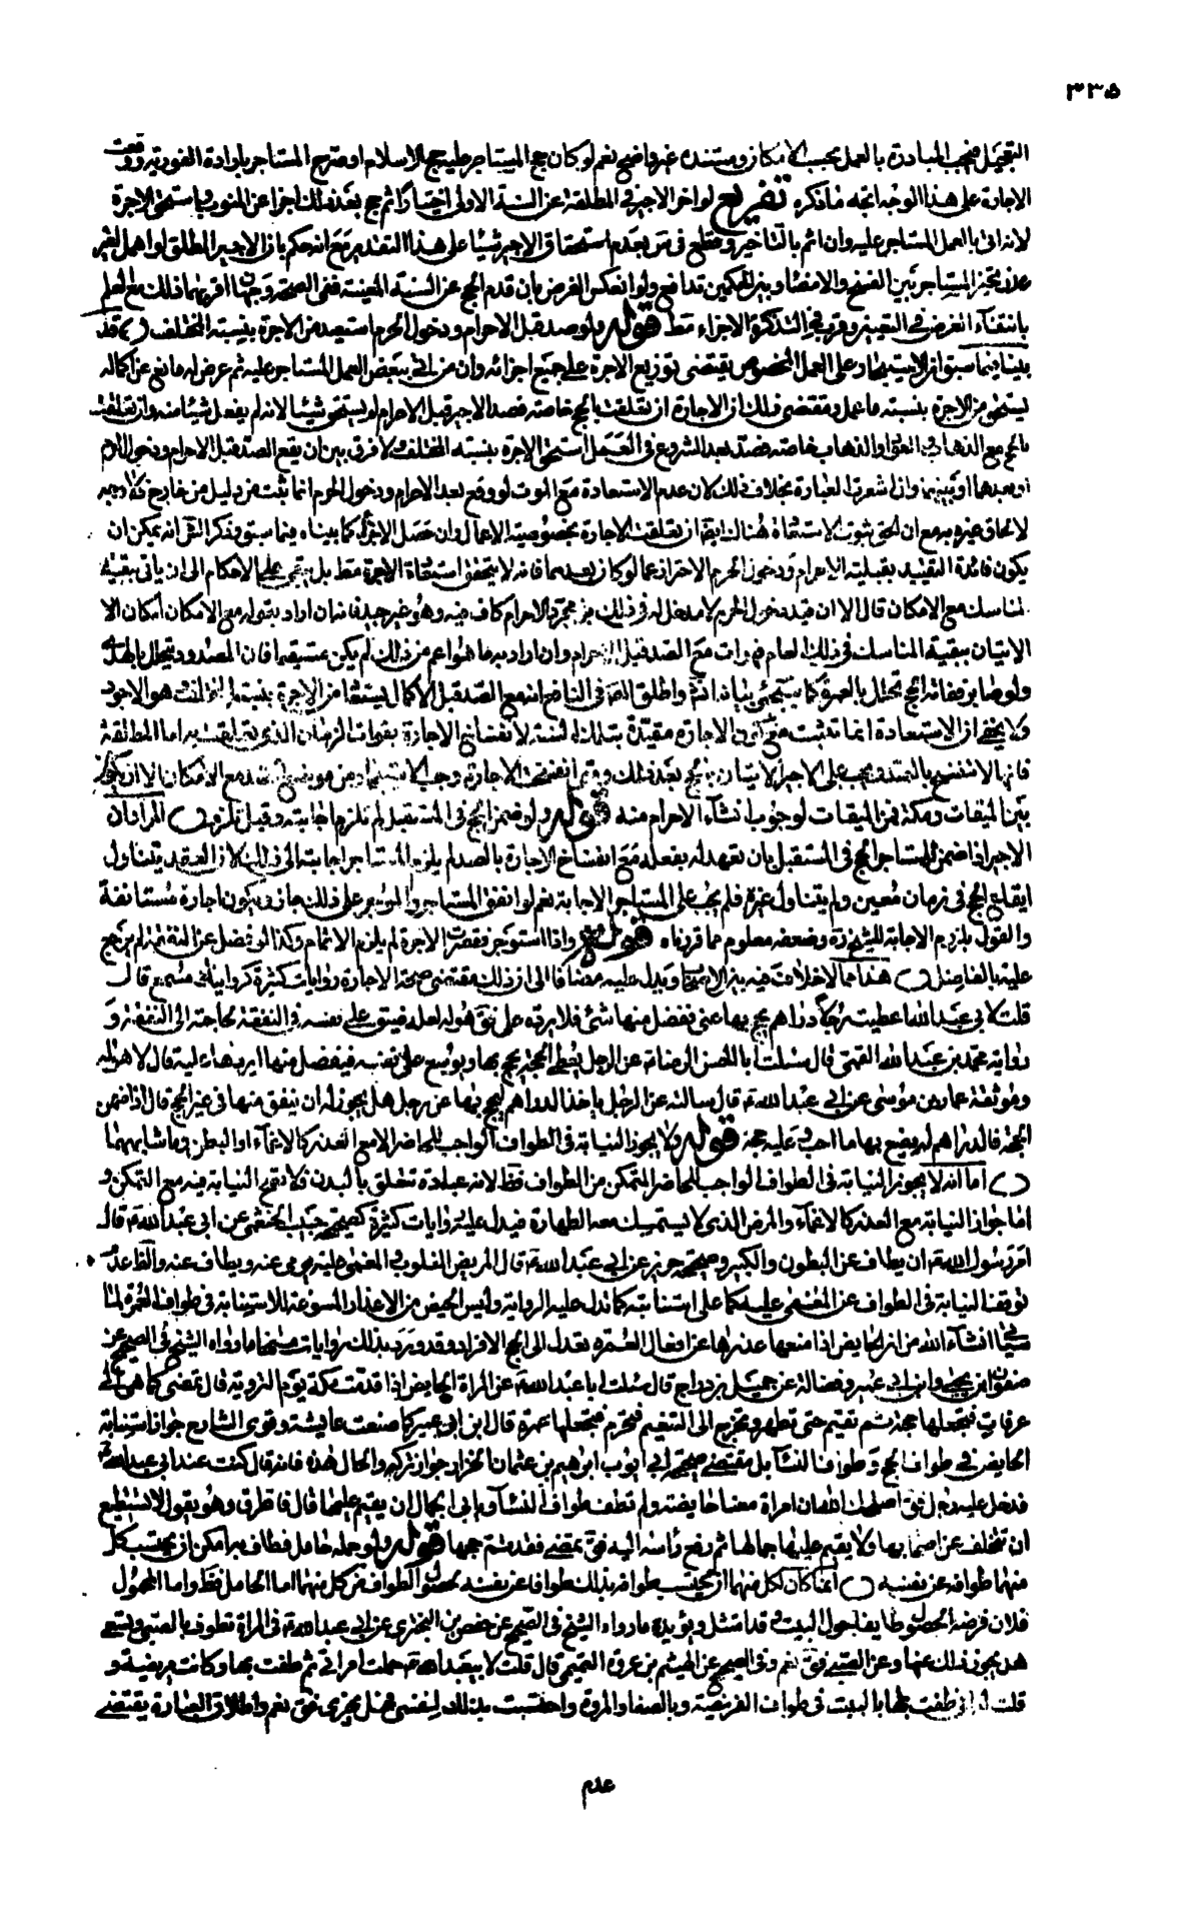 ٣٣٥
التعجيل فيجب المبادرة بالعمل بحسب الامكان ومستنده غير واضح نعم لو كان حج المستاجر عليه حج الاسلام او صرح المستاجر بارادة الفورية ووقعت
الاجارة على هذا الوجه اتجه ما ذكره تفريع لو اخر الاجير في المطلقة عن السنة الاولى اختيارا ثم حج بعد ذلك اجزا عن المنوب واستحق الاجرة
لانه اتى بالعمل المستاجر عليه وان اثم بالتاخير وقطع في س بعدم استحقاق الاجير شيئا على هذا التقدير مع انه حكم بان الاجير المطلق لو اهمل لغير
عذر يتخير المستاجر بين الفسخ والامضاء وبين الحكمين تدافع ولو انعكس الفرض بان قدم الحج عن السنة المعينة ففي الصحة وجهان اقربهما ذلك مع العلم
بانتفاء الغرض في التعيين وقرب في التذكرة الاجزاء مط قوله ولو صد قبل الاحرام ودخول الحرم استعيد من الاجرة بنسبة المتخلف قد
بينا فيما سبق ان الاستيجار على العمل المخصوص يقتضي توزيع الاجرة على جميع اجزائه وان من اتى ببعض العمل المستاجر عليه ثم عرض له مانع عن اكماله
يستحق من الاجرة بنسبة ما عمل ومقتضى ذلك ان الاجارة ان تعلقت بالحج خاصة فصد الاجير قبل الاحرام لم يستحق شيئا لانه لم يفعل شيئا منه وان تعلقت
بالحج مع الذهاب والعود او الذهاب خاصة فصد بعد الشروع في العمل استحق الاجرة بنسبة المتخلف ولا فرق بين ان يقع الصد قبل الاحرام ودخول الحرم
او بعدهما او بينهما وان اشعرت العبارة بخلاف ذلك لان عدم الاستعادة مع الموت لو وقع بعد الاحرام ودخول الحرم انما ثبت من دليل من خارج فلا وجه
لالحاق غيره به مع ان الحق ثبوت الاستعادة هناك ايضا ان تعلقت الاجارة بخصوصية الاعمال وان حصل الاجزاء كما بيناه فيما سبق وذكر الش انه يمكن ان
يكون فائدة التقييد بقبلية الاحرام ودخول الحرم الاحتراز عما لو كان بعدهما فانه لا يتحقق استعادة الاجرة مط بل يبقى على الاحكام الى ان ياتي ببقية
المناسك مع الامكان قال الا ان قيد دخول الحرم لا مدخل له في ذلك بل مجرد الاحرام كاف فيه وهو غير جيد فانه ان اراد بقوله مع الامكان امكان الا
الاتيان ببقية المناسك في ذلك العام فهو ات مع الصد قبل الاحرام وان اراد به ما هو اعم من ذلك لم يكن مستقيما فان المصدود يتحلل بالهدى
ولو صابر ففاته الحج تحلل بالعمرة كما سيجئ بيانه انش واطلق المص في النافع انه مع الصد قبل الاكمال يستعاد من الاجرة بنسبة المتخلف وهو الاجود
ولا يخفى ان الاستعادة انما تثبت مع كون الاجارة مقيدة بتلك السنة لانفساخ الاجارة بفوات الزمان الذي تعلقت به اما المطلقة
فانها لا تنفسخ بالصد ويجب على الاجير الاتيان بالحج بعد ذلك ومتى انفسخت الاجارة وجب الاستيجار من موضع الصد مع الامكان الا ان يكون
بين الميقات ومكة فمن الميقات لوجوب انشاء الاحرام منه قوله ولو ضمن الحج في المستقبل لم تلزم اجابته وقيل تلزم المراد ان
الاجير اذا ضمن للمستاجر الحج في المستقبل بان تعهد له بفعله مع انفساخ الاجارة بالصد لم يلزم المستاجر اجابته الى ذلك لان العقد يتناول
ايقاع الحج في زمان معين ولم يتناول غيره فلم يجب على المستاجر الاجابة نعم لو اتفق المستاجر والموجر على ذلك جاز ويكون اجارة مستانفة
والقول بلزوم الاجابة للشيخ ره وضعفه معلوم مما قررناه قوله واذا استوجر فقصرت الاجرة لم يلزم الاتمام وكذا لو فضل عن النفقة لم يرجع
عليه بالفاضل هذا مما لا خلاف فيه بين الاصحاب ويدل عليه مضافا الى ان ذلك مقتضى صحة الاجارة روايات كثيرة كرواية مسمع قال
قلت لابي عبد الله اعطيت رجلا دراهم يحج بها عني ففضل منها شئ فلم يرده على فق هو له لعله ضيق على نفسه في النفقة لحاجته الى النفقة و
رواية محمد بن عبد الله القمي قال سئلت ابا الحسن الرضا عن الرجل يعطى الحجة يحج بها ويوسع على نفسه فيفضل منها ايردها عليه قال لا هي له
وموثقة عمار بن موسى عن ابي عبد الله قال سالته عن الرجل ياخذ الدراهم ليحج بها عن رجل هل يجوز له ان ينفق منها في غير الحج قال اذا ضمن
الحجة فالدراهم له يصنع بها ما احب وعليه حجة قوله ولا يجوز النيابة في الطواف الواجب للحاضر الا مع العذر كالاغماء او البطن وما شابههما
اما انه لا يجوز النيابة في الطواف الواجب للحاضر المتمكن من الطواف فظ لانه عبادة تتعلق بالبدن فلا تصح النيابة فيه مع التمكن و
اما جواز النيابة مع العذر كالاغماء والمرض الذي لا يستمسك معه الطهارة فيدل عليه روايات كثيرة كصحيحة حبيب الخثعمي عن ابي عبد الله قال
امر رسول الله ان يطاف عن المبطون والكسير وصحيحة حريز عن ابي عبد الله قال المريض المغلوب والمغمى عليه يرمى عنه ويطاف عنه والظ عدم
توقف النيابة في الطواف عن المغمى عليه كما على استنابته كما تدل عليه الرواية وليس الحيض من الاعذار المسوغة للاستنابة في طواف العمرة لما
سيجئ انشاء الله من ان الحايض اذا منعها عذرها عن افعال العمرة تعدل الى حج الافراد وقد ورد بذلك روايات منها ما رواه الشيخ في الصحيح عن
صفوان بن يحيى وابن ابي عمير وفضالة عن جميل بن دراج قال سئلت ابا عبد الله عن المراة الحايض اذا قدمت مكة يوم التروية قال تمضى كما هي الى
عرفات فتجعلها حجة ثم تقيم حتى تطهر وتخرج الى التنعيم فتحرم فتجعلها عمرة قال ابن ابي عمير كما صنعت عايشة وقوى الشارح جواز استنابة
الحايض في طواف الحج وطواف النساء بل مقتضى صحيحة ابي ايوب ابراهيم بن عثمان الخزاز جواز تركه والحال هذه فانه قال كنت عند ابي عبد الله
فدخل عليه رجل فق اصلحك الله ان امراة معنا حايضة ولم تطف طواف النساء ويابى الجمال ان يقيم عليها قال فاطرق وهو يقول لا تستطيع
ان تتخلف عن اصحابها ولا يقيم عليها جمالها ثم رفع راسه اليه فق تمضى فقد تم حجها قوله ولو حمله حامل فطاف به امكن ان يحتسب كل
منهما طوافه عن نفسه انما كان لكل منهما ان يحتسب بطوافه بذلك طوافا عن نفسه لحصول الطواف من كل منهما اما الحامل فظ واما المحمول
فلان فرضه الحصول طايفا حول البيت وقد امتثل ويؤيده ما رواه الشيخ في الصحيح عن حفص بن البختري عن ابي عبد الله في المراة تطوف بالصبي وتسعى به
هل يجزي ذلك عنها وعن الصبي فق نعم وفي الصحيح عن الهيثم بن عروة التميمي قال قلت لابي عبد الله حملت امراتي ثم طفت بها وكانت مريضة و
قلت له اني طفت بها بالبيت في طواف الفريضة وبالصفا والمروة واحتسبت بذلك لنفسي فهل يجزي فق نعم واطلاق العبارة يقتضى
عدم